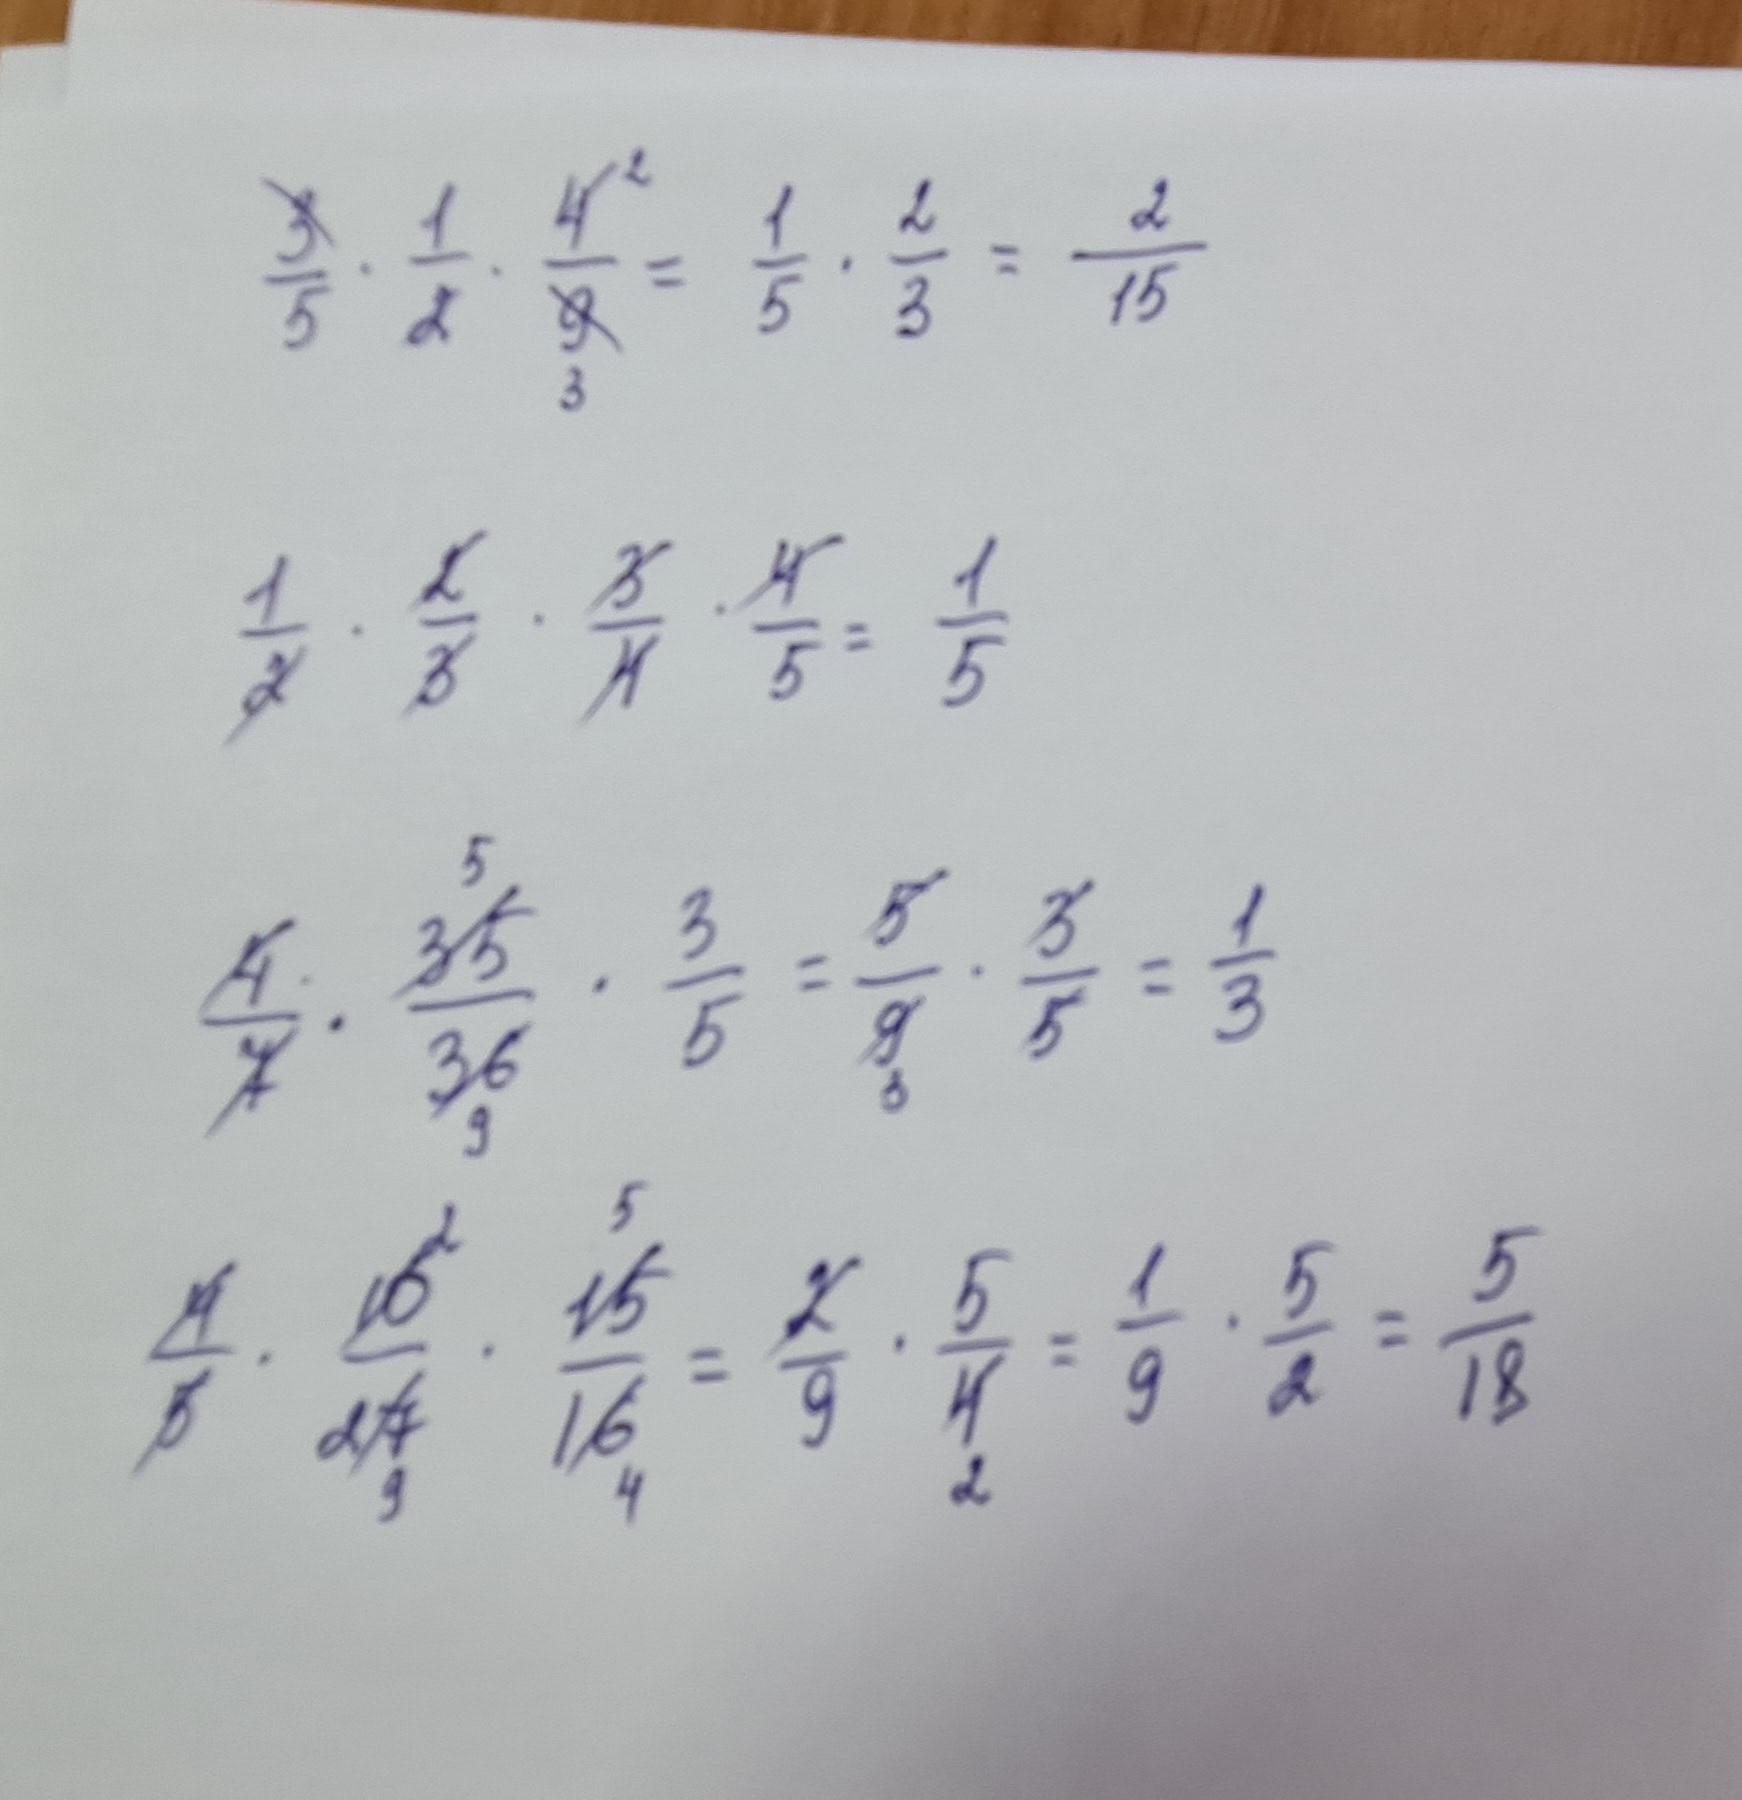 3/5 · 1/2 · 4/9 = 1/5 · 2/3 = 2/15
1/2 · 2/3 · 3/4 · 4/5 = 1/5
4/7 · 35/36 · 3/5 = 5/9 · 3/5 = 1/3
4/5 · 10/27 · 15/16 = 2/9 · 5/4 = 1/9 · 5/2 = 5/18